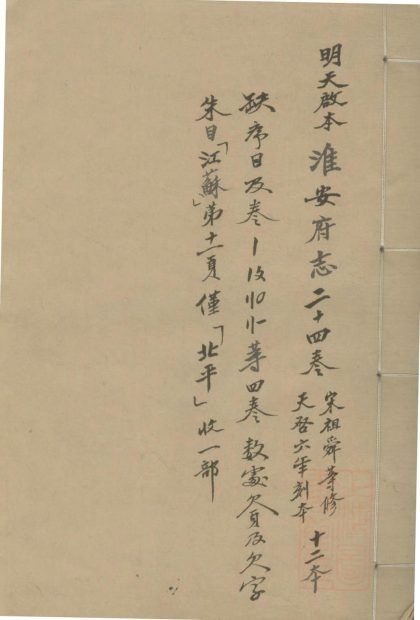 明天啟本 淮安府志 二十四卷 宋祖舜等修 天啓六年刻本 十二本
缺序目及卷 等四卷 數處欠頁及欠字
朱目「江蘇」第十一頁 僅「北平」收一部